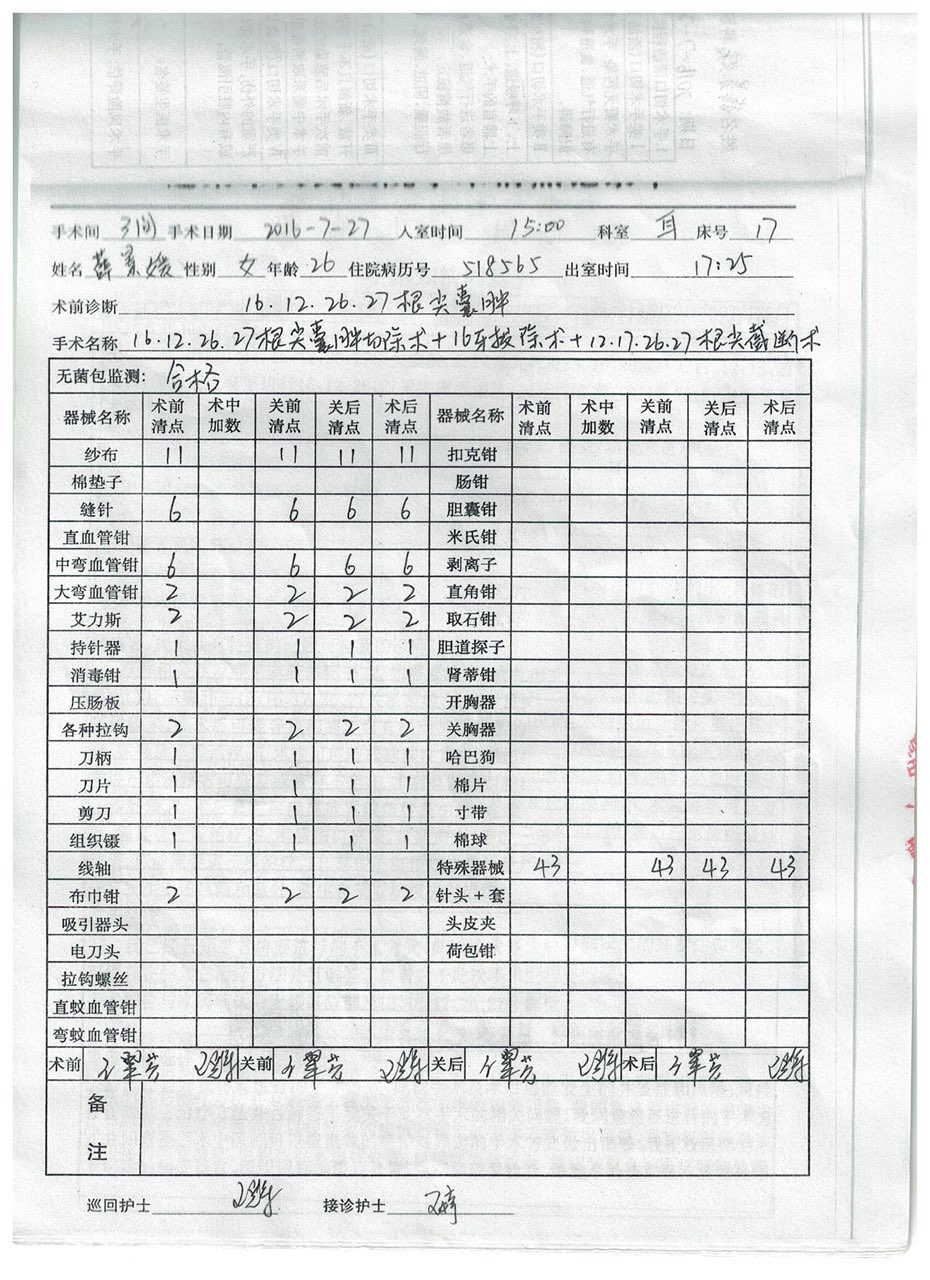 手术间 3间 手术日期 2016-7-27 入室时间 15:00 科室 耳 床号 17
姓名 薛 媛 性别 女 年龄 26 住院病历号 518565 出室时间 17:25
术前诊断 16.12.26.27根尖囊肿
手术名称 16.12.26.27根尖囊肿切除术+16牙拔除术+12.17.26.27根尖截断术
无菌包监测: 合格
器械名称 术前清点 术中加数 关前清点 关后清点 术后清点 器械名称 术前清点 术中加数 关前清点 关后清点 术后清点
纱布 11 11 11 11 扣克钳
棉垫子 肠钳
缝针 6 6 6 6 胆囊钳
直血管钳 米氏钳
中弯血管钳 6 6 6 6 剥离子
大弯血管钳 2 2 2 2 直角钳
艾力斯 2 2 2 2 取石钳
持针器 1 1 1 1 胆道探子
消毒钳 1 1 1 1 肾蒂钳
压肠板 开胸器
各种拉钩 2 2 2 2 关胸器
刀柄 1 1 1 1 哈巴狗
刀片 1 1 1 1 棉片
剪刀 1 1 1 1 寸带
组织镊 1 1 1 1 棉球
线轴 特殊器械 43 43 43 43
布巾钳 2 2 2 2 针头+套
吸引器头 头皮夹
电刀头 荷包钳
拉钩螺丝
直蚊血管钳
弯蚊血管钳
术前 翠芳 关前 翠芳 关后 翠芳 术后 翠芳
备注
巡回护士 接诊护士